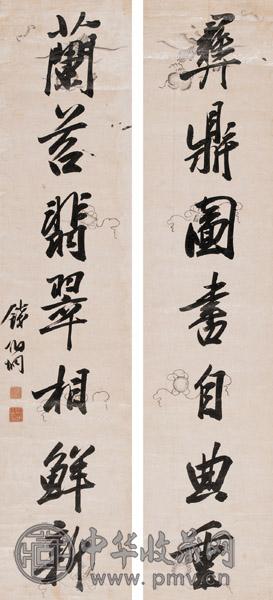 彝鼎圖書自典重
蘭苕翡翠相鮮新
錢伯坰
中华收藏网
www.pmv.cn